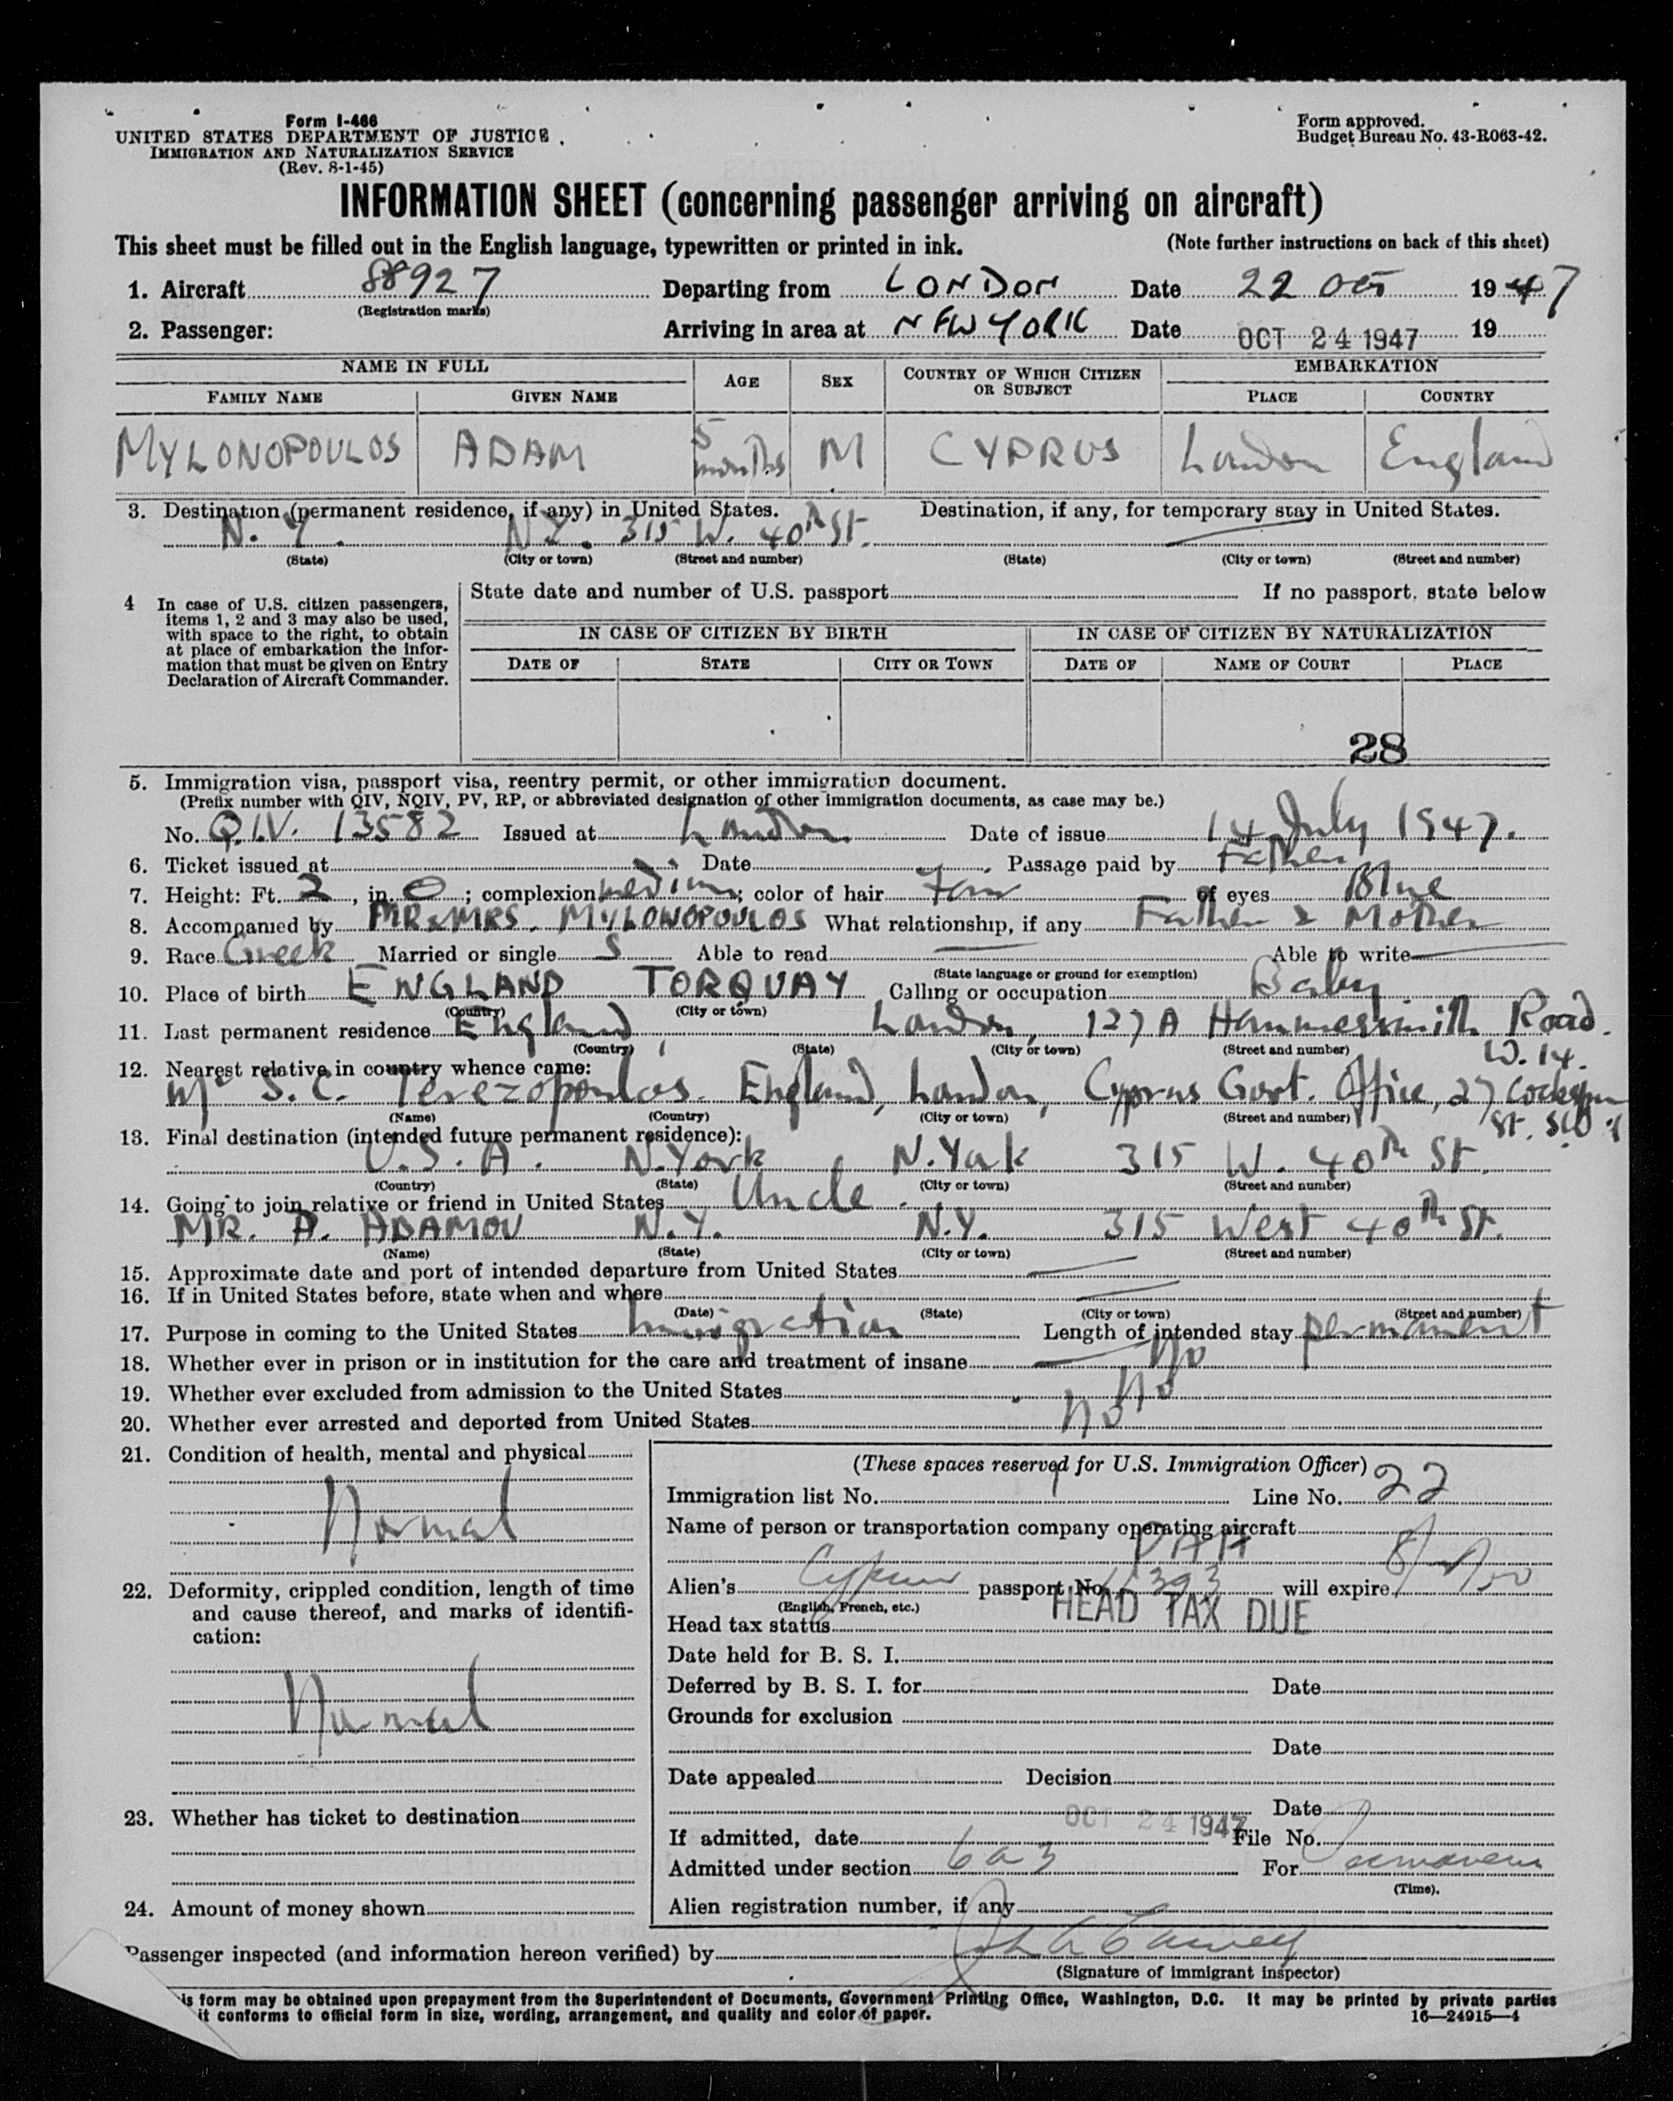 Form I-466
UNITED STATES DEPARTMENT OF JUSTICE
IMMIGRATION AND NATURALIZATION SERVICE
(Rev. 8-1-45)
Form approved.
Budget Bureau No. 43-R063-42.
INFORMATION SHEET (concerning passenger arriving on aircraft)
This sheet must be filled out in the English language, typewritten or printed in ink. (Note further instructions on back of this sheet)
1. Aircraft 88927 Departing from LONDON Date 22 OCT 1947
(Registration marks)
2. Passenger: Arriving in area at NEW YORK Date OCT 24 1947 19
NAME IN FULL AGE SEX COUNTRY OF WHICH CITIZEN OR SUBJECT EMBARKATION
FAMILY NAME GIVEN NAME PLACE COUNTRY
MYLONOPOULOS ADAM 5 months M CYPRUS London England
3. Destination (permanent residence, if any) in United States. Destination, if any, for temporary stay in United States.
N.Y. N.Y. 315 W. 40th St.
(State) (City or town) (Street and number) (State) (City or town) (Street and number)
4 In case of U.S. citizen passengers,
items 1, 2 and 3 may also be used,
with space to the right, to obtain
at place of embarkation the infor-
mation that must be given on Entry
Declaration of Aircraft Commander.
State date and number of U.S. passport If no passport, state below
IN CASE OF CITIZEN BY BIRTH IN CASE OF CITIZEN BY NATURALIZATION
DATE OF STATE CITY OR TOWN DATE OF NAME OF COURT PLACE
28
5. Immigration visa, passport visa, reentry permit, or other immigration document.
(Prefix number with QIV, NQIV, PV, RP, or abbreviated designation of other immigration documents, as case may be.)
No. Q.I.V. 13582 Issued at London Date of issue 14 July 1947.
6. Ticket issued at Date Passage paid by Father
7. Height: Ft. 2, in. 0; complexion medium; color of hair Fair of eyes Blue
8. Accompanied by MR & MRS. MYLONOPOULOS What relationship, if any Father & Mother
9. Race Greek Married or single S Able to read Able to write
(State language or ground for exemption)
10. Place of birth ENGLAND TORQUAY Calling or occupation Baby
(Country) (City or town)
11. Last permanent residence England, London, 127A Hammersmith Road. W.14.
(Country) (State) (City or town) (Street and number)
12. Nearest relative in country whence came:
Mr S.C. Terezopoulos. England, London, Cyprus Govt. Office, 27 Cockspur St. SW1
(Name) (Country) (City or town) (Street and number)
13. Final destination (intended future permanent residence):
U.S.A. N.York N.York 315 W. 40th St.
(Country) (State) (City or town) (Street and number)
14. Going to join relative or friend in United States Uncle.
MR. A. ADAMOU N.Y. N.Y. 315 West 40th St.
(Name) (State) (City or town) (Street and number)
15. Approximate date and port of intended departure from United States
16. If in United States before, state when and where
(Date) (State) (City or town) (Street and number)
17. Purpose in coming to the United States Immigration Length of intended stay permanent
18. Whether ever in prison or in institution for the care and treatment of insane No
19. Whether ever excluded from admission to the United States No
20. Whether ever arrested and deported from United States No
21. Condition of health, mental and physical
Normal
22. Deformity, crippled condition, length of time
and cause thereof, and marks of identifi-
cation:
Normal
23. Whether has ticket to destination
24. Amount of money shown
(These spaces reserved for U.S. Immigration Officer)
Immigration list No. 1 Line No. 22
Name of person or transportation company operating aircraft
PAA
Alien's Cyprus passport No. will expire
(English, French, etc.)
Head tax status HEAD TAX DUE
Date held for B. S. I.
Deferred by B. S. I. for Date
Grounds for exclusion
Date
Date appealed Decision
Date
If admitted, date OCT 24 1947 File No.
Admitted under section 6 a 3 For Permanent
(Time).
Alien registration number, if any
Passenger inspected (and information hereon verified) by
(Signature of immigrant inspector)
is form may be obtained upon prepayment from the Superintendent of Documents, Government Printing Office, Washington, D.C. It may be printed by private parties
it conforms to official form in size, wording, arrangement, and quality and color of paper. 16—24915—4